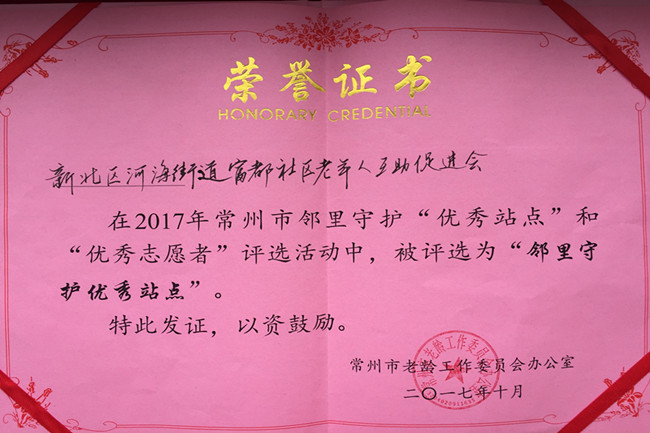 荣誉证书
HONORARY CREDENTIAL
新北区河海街道富都社区老年人互助促进会
在2017年常州市邻里守护“优秀站点”和
“优秀志愿者”评选活动中，被评选为“邻里守
护优秀站点”。
特此发证，以资鼓励。
常州市老龄工作委员会办公室
二〇一七年十月